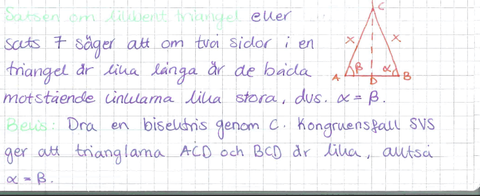 Satsen om likbent triangel eller
sats 7 säger att om två sidor i en
triangel är lika långa är de båda
motstående vinklarna lika stora, dvs. α = β.
Bevis: Dra en bisektris genom C. Kongruensfall SVS
ger att trianglarna ACD och BCD är lika, alltså
α = β.
C
x
x
A
β
α
B
D